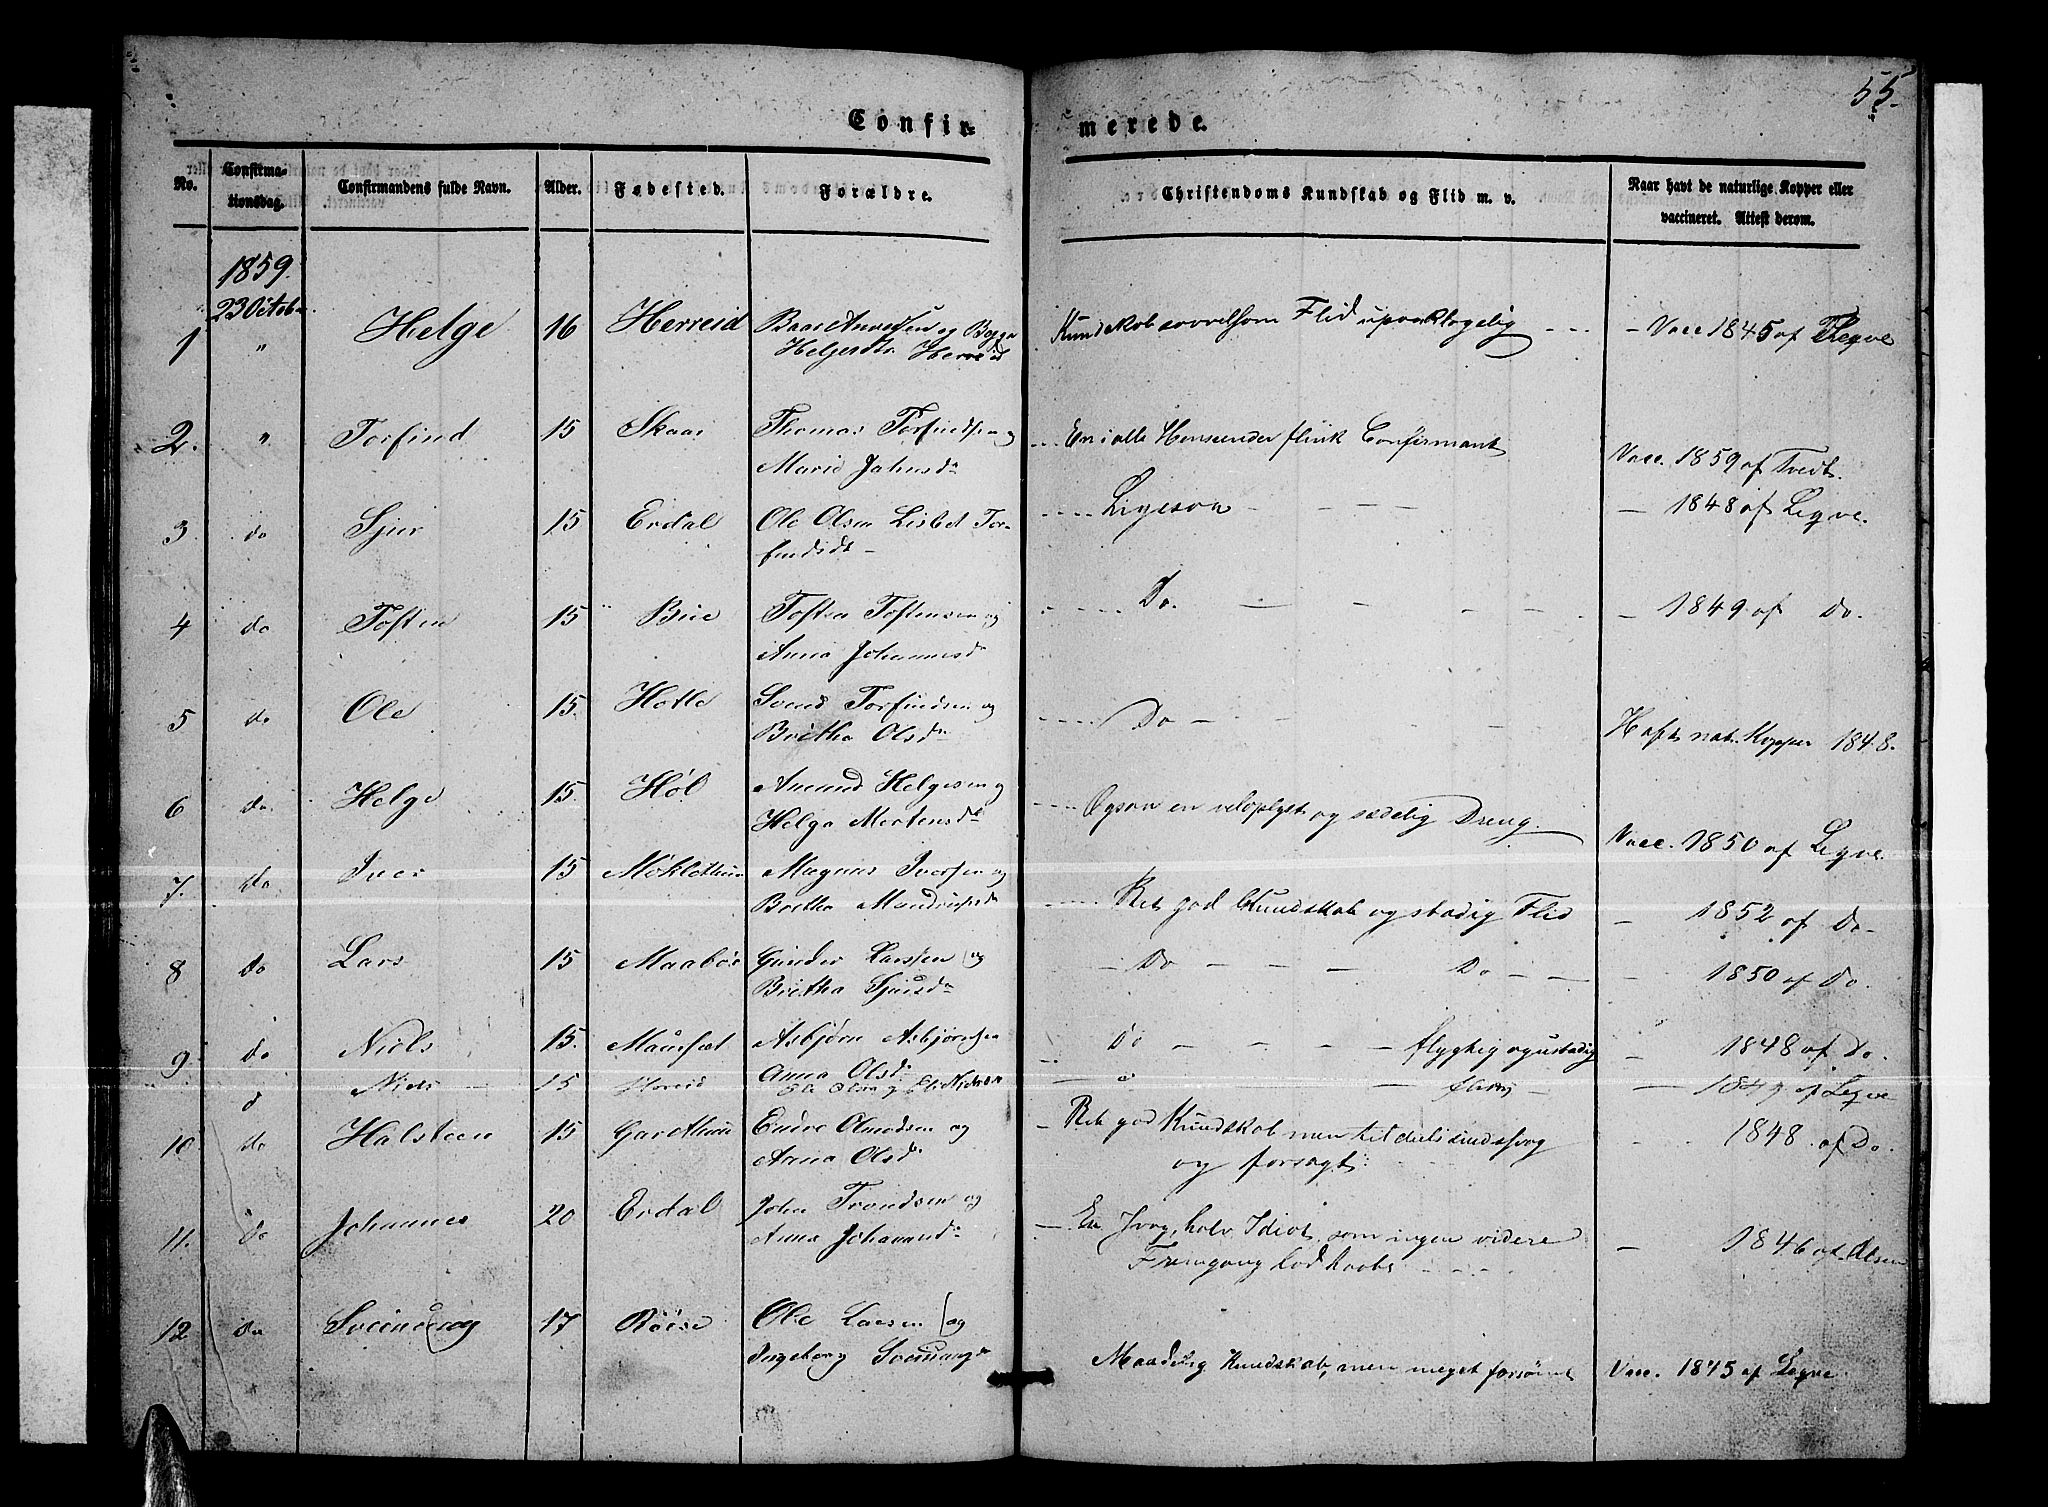 55.
Confir-
merede.
No.
Confirma-
tionsdag.
Confirmandens fulde Navn.
Alder.
Fødested.
Forældre.
Christendoms Kundskab og Flid m. v.
Naar havt de naturlige Kopper eller
vaccineret. Attest derom.
1859.
23 Octob
1 " Helge 16 Herreid og
Helgesdtr Herreid
Kundskab saavelsom Flid upaaklagelig - Vacc 1845 af Legve
2. " Torfind 15 Skaar Thomas Torfindsen og
Marie Johnsdr
En i alle Henseender flink Confirmant Vacc. 1859 af Tvedt.
3 do Sjur 15 Erdal Ole Olsen Lisbet Tor-
findsdt
Ligesaa - 1848 af Legve.
4 do Tosten 15 Bue Tosten Tostensen og
Anna Johannesdr
Do. - 1849 af Do.
5 do Ole 15. Hotle Svend Torfindsen og
Britha Olsdr
Do - Haft nat. Kopper 1848.
6 do Helge 15. Høl Amund Helgesen og
Helga Mortensdr
Ogsaa en veloplyst og sædelig Dreng. Vacc. 1850 af Legve.
7. do Iver 15 Møklethun Magnus Iversen og
Britha
Ret god Kundskab og stadig Flid - 1852 af Do
8 do Lars 15 Maabøe Gunder Larssen og
Britha Sjursdr
Do - Do - 1850 af Do.
9 do Niels 15. Asbjørn Asbjørnsen
Anna Olsdr
Do - flygtig og ustadig - 1848 af Do.
d Niels 15 Hereid Ole Olsen og
- af Legve
10 do Halsteen 15 Garethun Endre Olmodsen og
Anna Olsdr
Ret god Kundskab men tildeels sindssvag
og forsagt. - 1848 af Do.
11. do Johannes 20 Erdal John Trondsen og
Anna
En svag, halv Idiot, som ingen videre
Fremgang lod haabe - 1846 af Olsen
12 do Sveinung 17 Røise Ole Larsen og
Ingeborg Sveinungsdr
Maadelig Kundskab, men meget forsømt Vacc. 1845 af Legve.